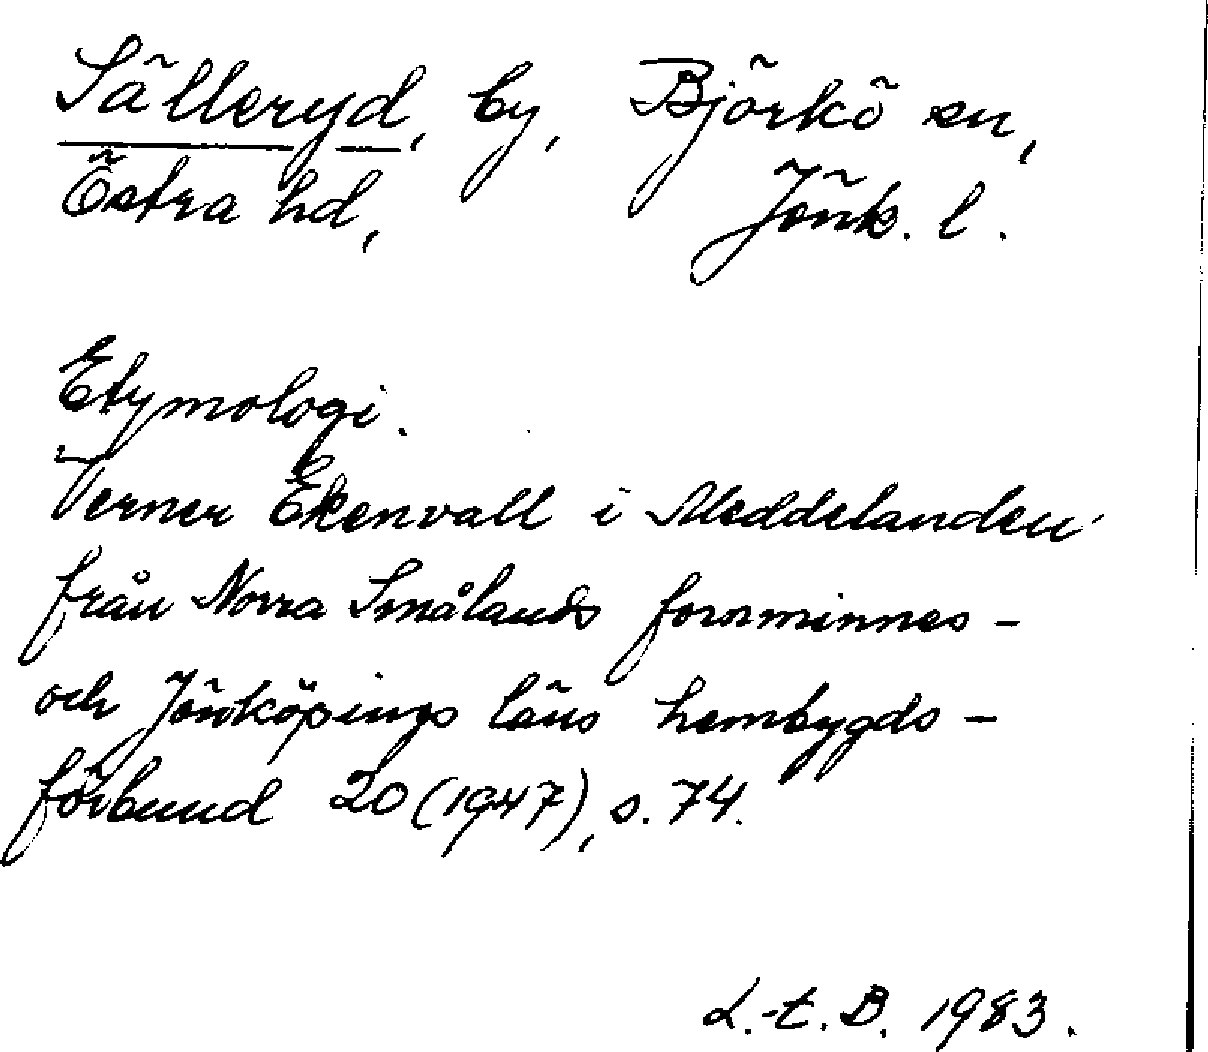 Sälleryd, by, Björkö sn,
Östra hd, Jönk. l.
Etymologi.
Verner Ekenvall i Meddelanden
från Norra Smålands fornminnes-
och Jönköpings läns hembygds-
förbund 20 (1947), s. 74.
L.-t. B. 1983.